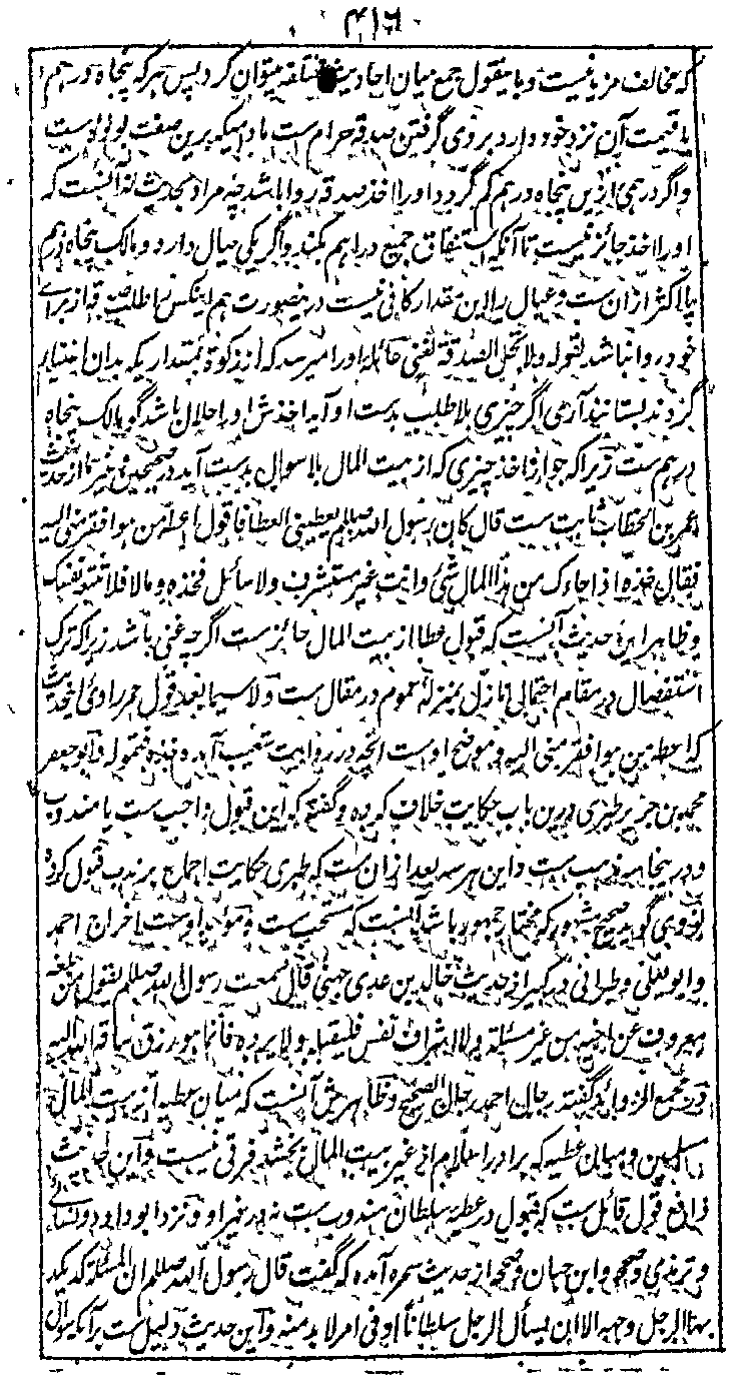 ۴۱۶
که مخالف مزید نیست و باینقول جمع میان احادیث مختلفه میتوان کرد پس هرکه پنجاه درهم
یا قیمت آن نزد خود دارد بر وی گرفتن صدقه حرام ست مادامیکه برین صفت بود اوست
و اگر درهمی ازین پنجاه درهم کم گردد او را اخذ صدقه روا باشد چه مراد بحدیث نه آنست که
او را اخذ جائز نیست تا آنکه استنفاق جمیع دراهم بکند و اگر یکی عیال دارد و مالک پنجاه درهم
یا اکثر ازان ست و عیال را این مقدار کافی نیست درینصورت هم اینکس را طلب صدقه از برای
خود روا نباشد لقوله ولا تحل الصدقة لغنی عائله او را میرسد که از زکوة بمقداریکه بدان
گردند بستانند آری اگر چیزی بلا طلب بدست او آید اخذش او را حلال باشد گو مالک پنجاه
درهم ست زیراکه جواز اخذ چیزی که از بیت المال بلا سوال بدست آید در صحیحین و غیرهما از حدیث
عمر بن الخطاب ثابت ست قال کان رسول الله صللم یعطینی العطا فاقول اعطه من هو افقر منی الیه
فقال خذه اذا جاءک من هذا المال شئ وانت غیر مستشرف ولا سائل فخذه وما لا فلا تتبعه نفسک
و ظاهر این حدیث آنست که قبول عطا از بیت المال جائز ست اگرچه غنی باشد زیراکه ترک
استفصال در مقام احتمال نازل بمنزلۀ عموم در مقال ست و لا سیما بعد قول عمر راوی الحدیث
که اعطه من هو افقر منی الیه و موضح اوست آنچه در روایت آمده خذه فتموله و ابو جعفر
محمد بن جریر طبری درین باب حکایت خلاف کرده و گفته که این قبول واجب ست یا مندوب
و در ینجا سه مذهب ست و این هرسه بعد ازان ست که طبری حکایت اجماع بر ندب قبول کرده
نووی گوید صحیح مشهور که مختار جمهور باشد آنست که مستحب ست و مؤید اوست اخراج احمد
و ابو یعلی و طبرانی در کبیر از حدیث خالد بن عدی جهنی قال سمعت رسول الله صللم یقول من بلغه
معروف عن اخیه من غیر مسئلة ولا اشراف نفس فلیقبله ولا یرده فانما هو رزق ساقه الله الیه
در مجمع الزوائد گفته رجال احمد رجال الصحیح و ظاهرش آنست که میان عطیه از بیت المال
مسلمین و میان عطیه که برادر اسلام از غیر بیت المال بخشد فرقی نیست و این حدیث
دافع قول قائل ست که قبول در عطیۀ سلطان مندوب ست نه در غیر او و نزد ابو داود و نسائی
و ترمذی وصححه و ابن حبان وصححه از حدیث سمره آمده که گفت قال رسول الله صللم ان المسئلة کد یکد
بها الرجل وجهه الا ان یسأل الرجل سلطانا او فی امر لا بد منه و این حدیث دلیل ست بر آنکه سوال